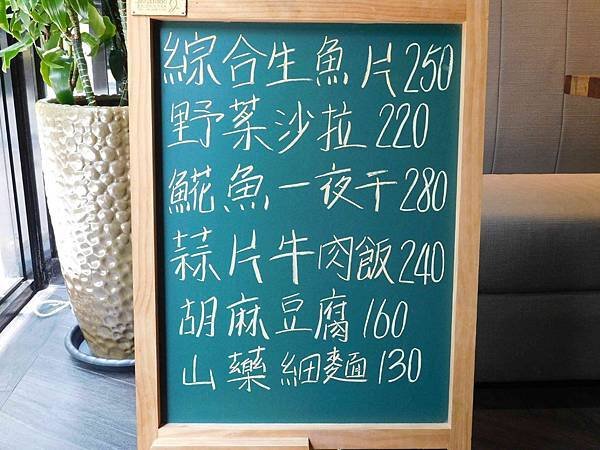 綜合生魚片250
野菜沙拉220
鯡魚一夜干280
蒜片牛肉飯240
胡麻豆腐160
山藥細麵130